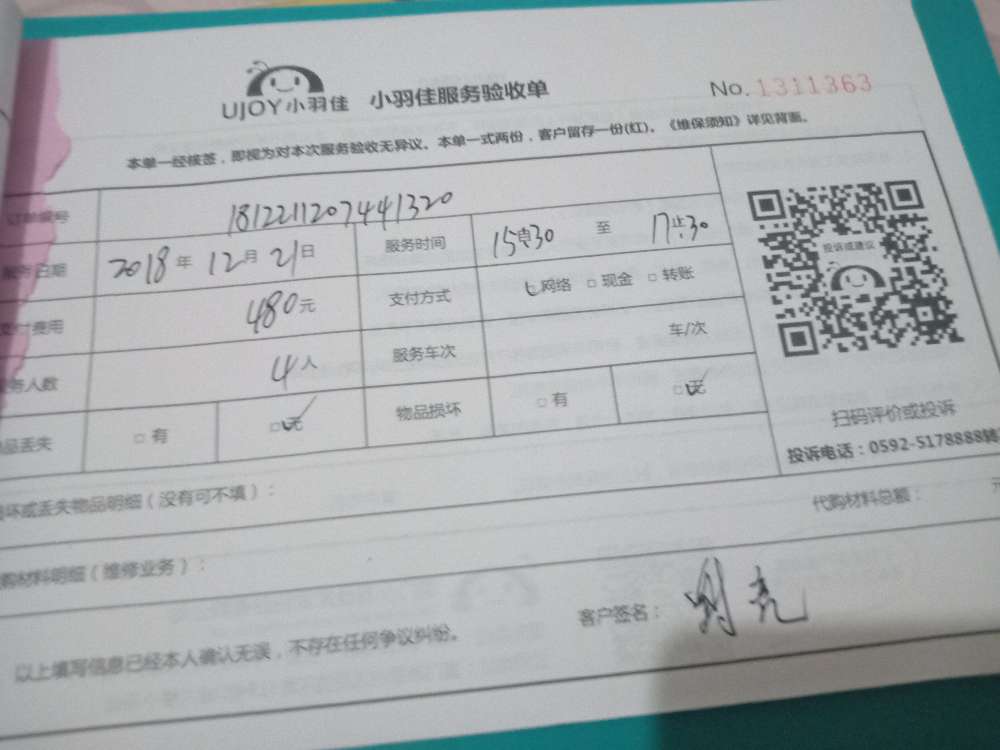 UJOY小羽佳 小羽佳服务验收单 No.1311363
本单一经核签，即视为对本次服务验收无异议。本单一式两份，客户留存一份(红)。《维保须知》详见背面。
订单编号 1812211207441320
服务日期 2018年12月21日 服务时间 15点30 至 17点30
支付费用 480元 支付方式 网络 □现金 □转账
服务人数 4人 服务车次 车/次
品丢失 □有 □无 物品损坏 □有 □无
投诉或建议
扫码评价或投诉
投诉电话：0592-5178888转
坏或丢失物品明细（没有可不填）：
购材料明细（维修业务）： 代购材料总额： 元
以上填写信息已经本人确认无误，不存在任何争议纠纷。 客户签名：